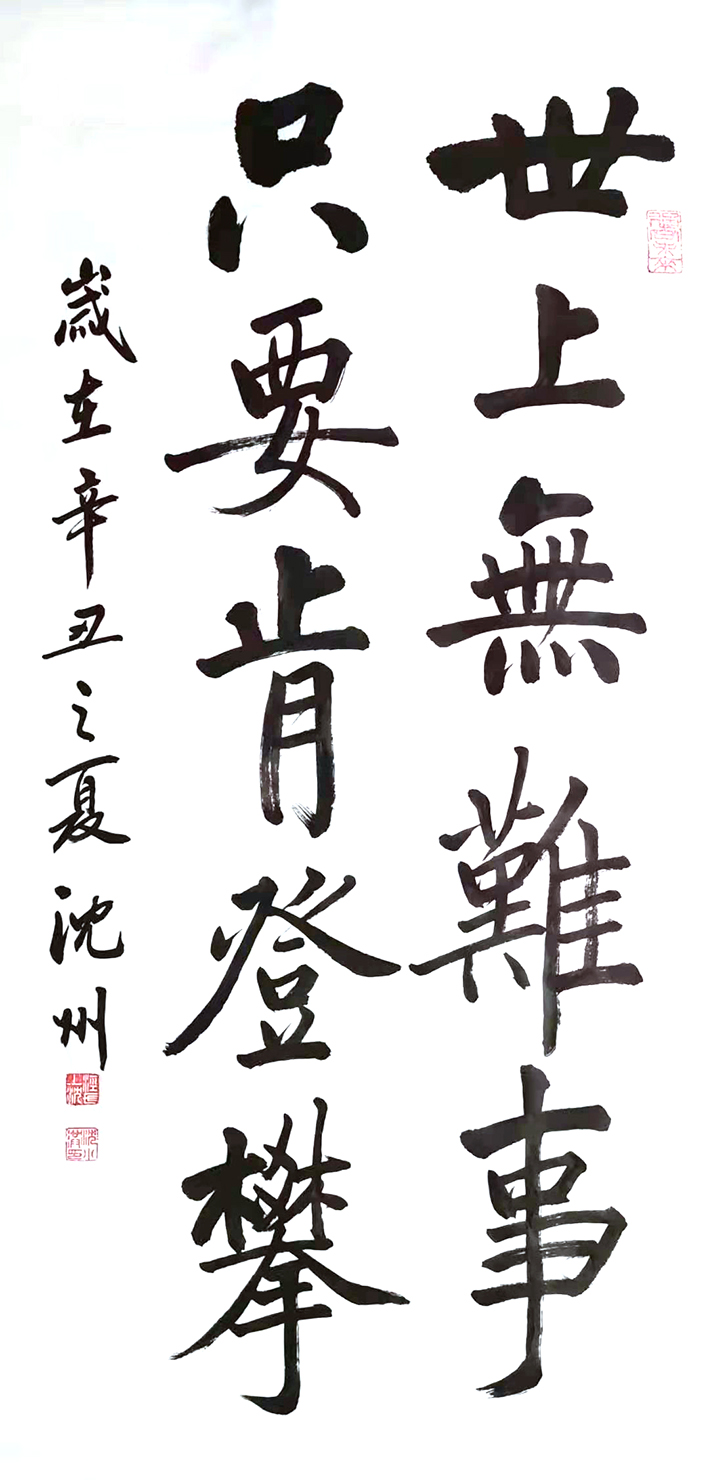 世上無難事
只要肯登攀
歲在辛丑之夏沈州